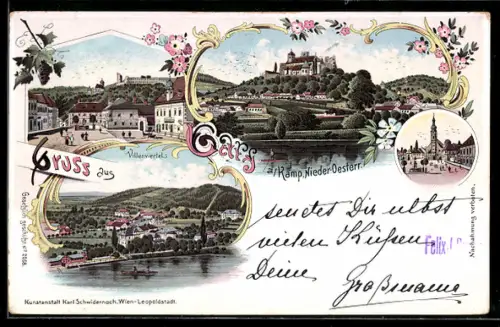 Gruss aus
Gars
a/Kamp, Nieder-Oesterr.
Villenviertel
sendet Dir nebst
vielen Küssen
Deine Großmama
Felix
Gesetzlich geschützt
Nachahmung verboten.
Kunstanstalt Karl Schwidernoch, Wien-Leopoldstadt.